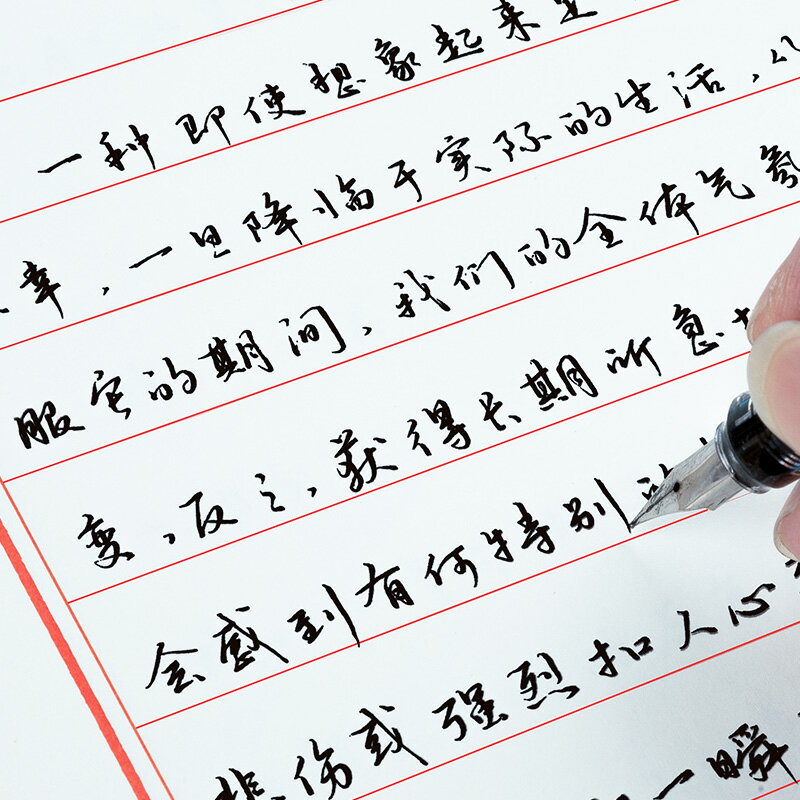 一种即使想象起来
幸，一旦降临于实际的生活，
服它的期间，我们的全体气氛
变，反之，获得长期所
会感到有何特别的
悲伤或强烈扣人心
一瞬